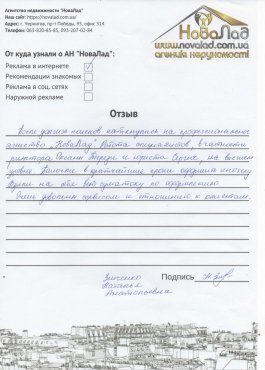 Агентство недвижимости "НоваЛад"
Наш сайт: https://novalad.com.ua/
Адрес: г. Чернигов, пр-т Победы, 95, офис 314
Телефон: 063-820-65-85, 093-207-02-84
НоваЛад
www.novalad.com.ua
агенція нерухомості
От куда узнали о АН "НоваЛад":
Реклама в интернете
Рекомендации знакомых
Реклама в соц. сетях
Наружной рекламе
Отзыв
После долгих поисков наткнулись на профессиональное
агентство "НоваЛад". Работа специалистов, в частности
риэлтора Оксаны и юриста на высшем
уровне. в кратчайшие сроки оформить ипотеку
взяли на себе всю по оформлению.
Очень довольны сервисом и отношением к клиентам.
Зинченко
Наталья
Анатольевна
Подпись